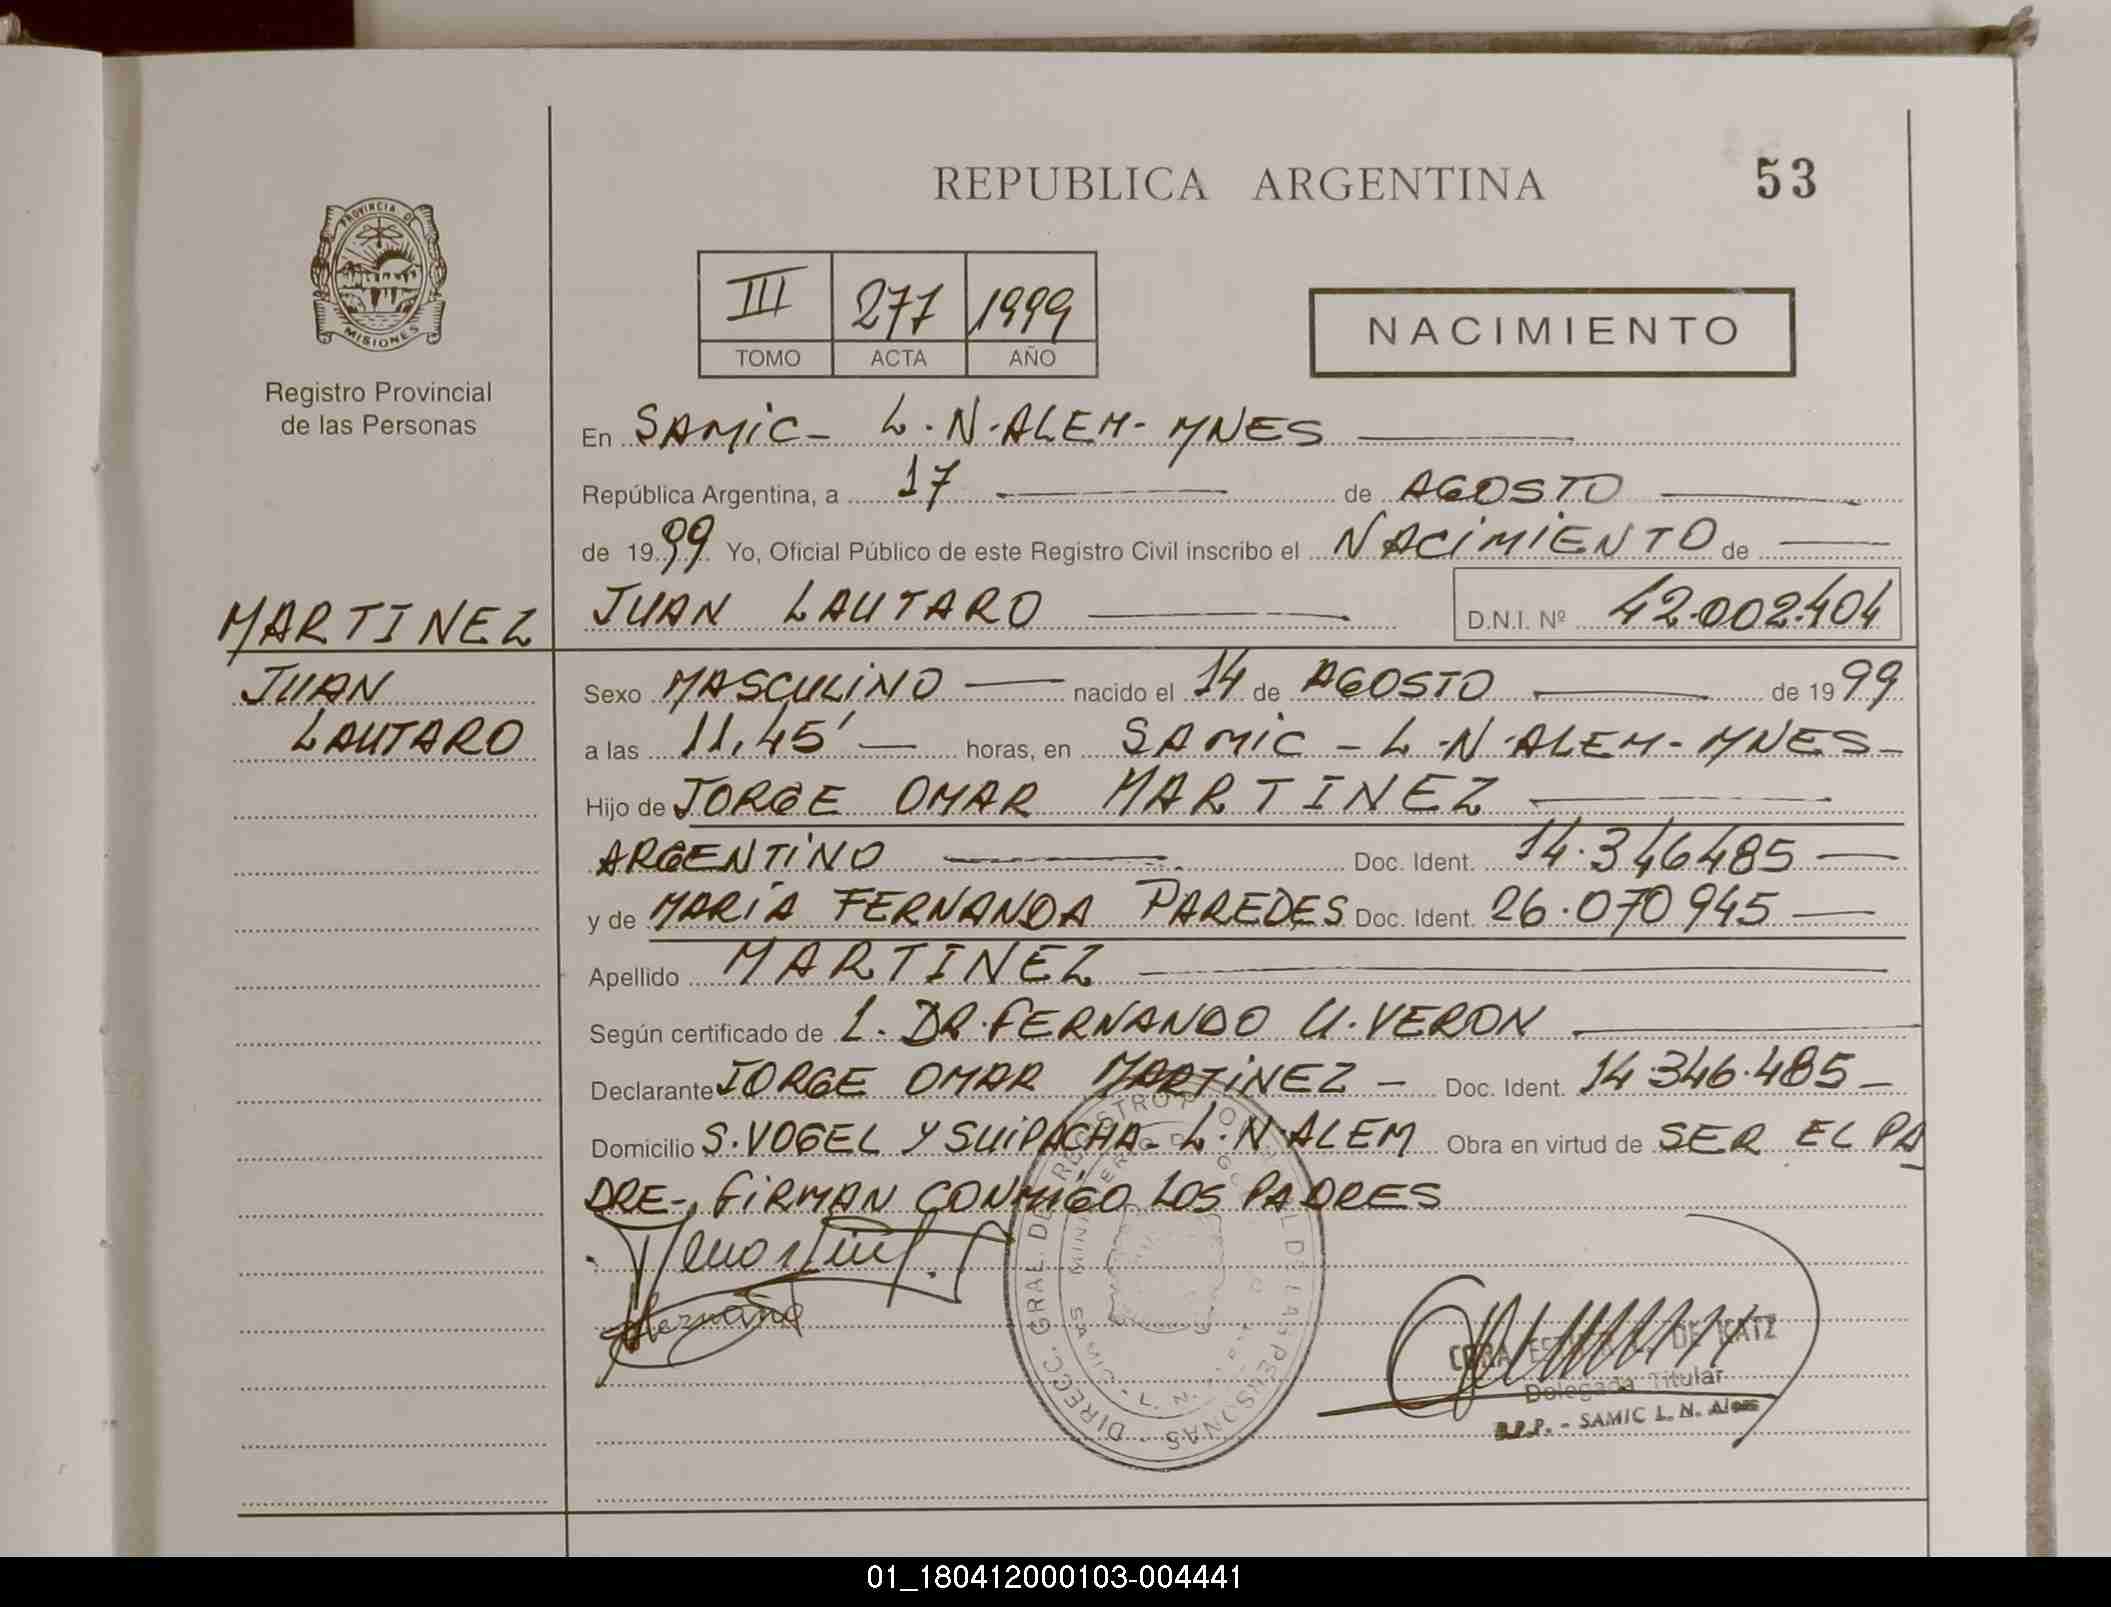 REPUBLICA ARGENTINA
53
PROVINCIA DE
MISIONES
Registro Provincial
de las Personas
III 277 1999
TOMO ACTA AÑO
NACIMIENTO
En SAMIC - L.N.ALEM - MNES
República Argentina, a 17 de AGOSTO
de 1999 Yo, Oficial Público de este Registro Civil inscribo el NACIMIENTO de
MARTINEZ
JUAN
LAUTARO
JUAN LAUTARO D.N.I. Nº 42.002.404
Sexo MASCULINO nacido el 14 de AGOSTO de 1999
a las 11,45' horas, en SAMIC - L.N.ALEM - MNES -
Hijo de JORGE OMAR MARTINEZ
ARGENTINO Doc. Ident. 14.346485
y de MARÍA FERNANDA PAREDES Doc. Ident. 26.070945
Apellido MARTINEZ
Según certificado de L. DR. FERNANDO U. VERON
Declarante JORGE OMAR MARTINEZ - Doc. Ident. 14.346.485 -
Domicilio S. VOGEL Y SUIPACHA - L.N.ALEM Obra en virtud de SER EL PA
DRE -, FIRMAN CONMIGO LOS PADRES
DIRECC. GRAL. DE REGISTRO DE LAS PERSONAS
SAMIC - L. N.
DE KATZ
Delegada Titular
SAMIC L. N. Alem
01_180412000103-004441